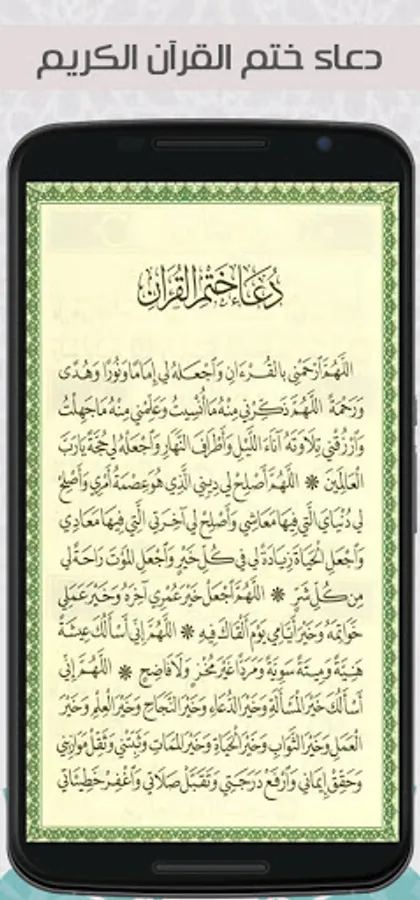 دعاء ختم القرآن الكريم
دُعَاءُ خَتْمِ القُرْآنِ
اللَّهُمَّ ارْحَمْنِي بِالقُرْءَانِ وَاجْعَلهُ لِي إِمَامًا وَنُورًا وَهُدًى
وَرَحْمَةً اللَّهُمَّ ذَكِّرْنِي مِنْهُ مَا أُنْسِيتُ وَعَلِّمْنِي مِنْهُ مَا جَهِلْتُ
وَارْزُقْنِي تِلَاوَتَهُ آنَاءَ اللَّيْلِ وَأَطْرَافَ النَّهَارِ وَاجْعَلْهُ لِي حُجَّةً يَارَبَّ
العَالَمِينَ * اللَّهُمَّ أَصْلِحْ لِي دِينِي الَّذِي هُوَ عِصْمَةُ أَمْرِي وَأَصْلِحْ
لِي دُنْيَايَ الَّتِي فِيهَا مَعَاشِي وَأَصْلِحْ لِي آخِرَتِي الَّتِي فِيهَا مَعَادِي
وَاجْعَلِ الحَيَاةَ زِيَادَةً لِي فِي كُلِّ خَيْرٍ وَاجْعَلِ المَوْتَ رَاحَةً لِي
مِن كُلِّ شَرٍّ * اللَّهُمَّ اجْعَلْ خَيْرَ عُمْرِي آخِرَهُ وَخَيْرَ عَمَلِي
خَوَاتِمَهُ وَخَيْرَ أَيَّامِي يَوْمَ أَلْقَاكَ فِيهِ * اللَّهُمَّ إِنِّي أَسْأَلُكَ عِيشَةً
هَنِيَّةً وَمِيتَةً سَوِيَّةً وَمَرَدًّا غَيْرَ مُخْزٍ وَلَا فَاضِحٍ * اللَّهُمَّ إِنِّي
أَسْأَلُكَ خَيْرَ المَسْأَلَةِ وَخَيْرَ الدُّعَاءِ وَخَيْرَ النَّجَاحِ وَخَيْرَ العِلْمِ وَخَيْرَ
العَمَلِ وَخَيْرَ الثَّوَابِ وَخَيْرَ الحَيَاةِ وَخَيْرَ المَمَاتِ وَثَبِّتْنِي وَثَقِّلْ مَوَازِينِي
وَحَقِّقْ إِيمَانِي وَارْفَعْ دَرَجَتِي وَتَقَبَّلْ صَلَاتِي وَاغْفِرْ خَطِيئَاتِي